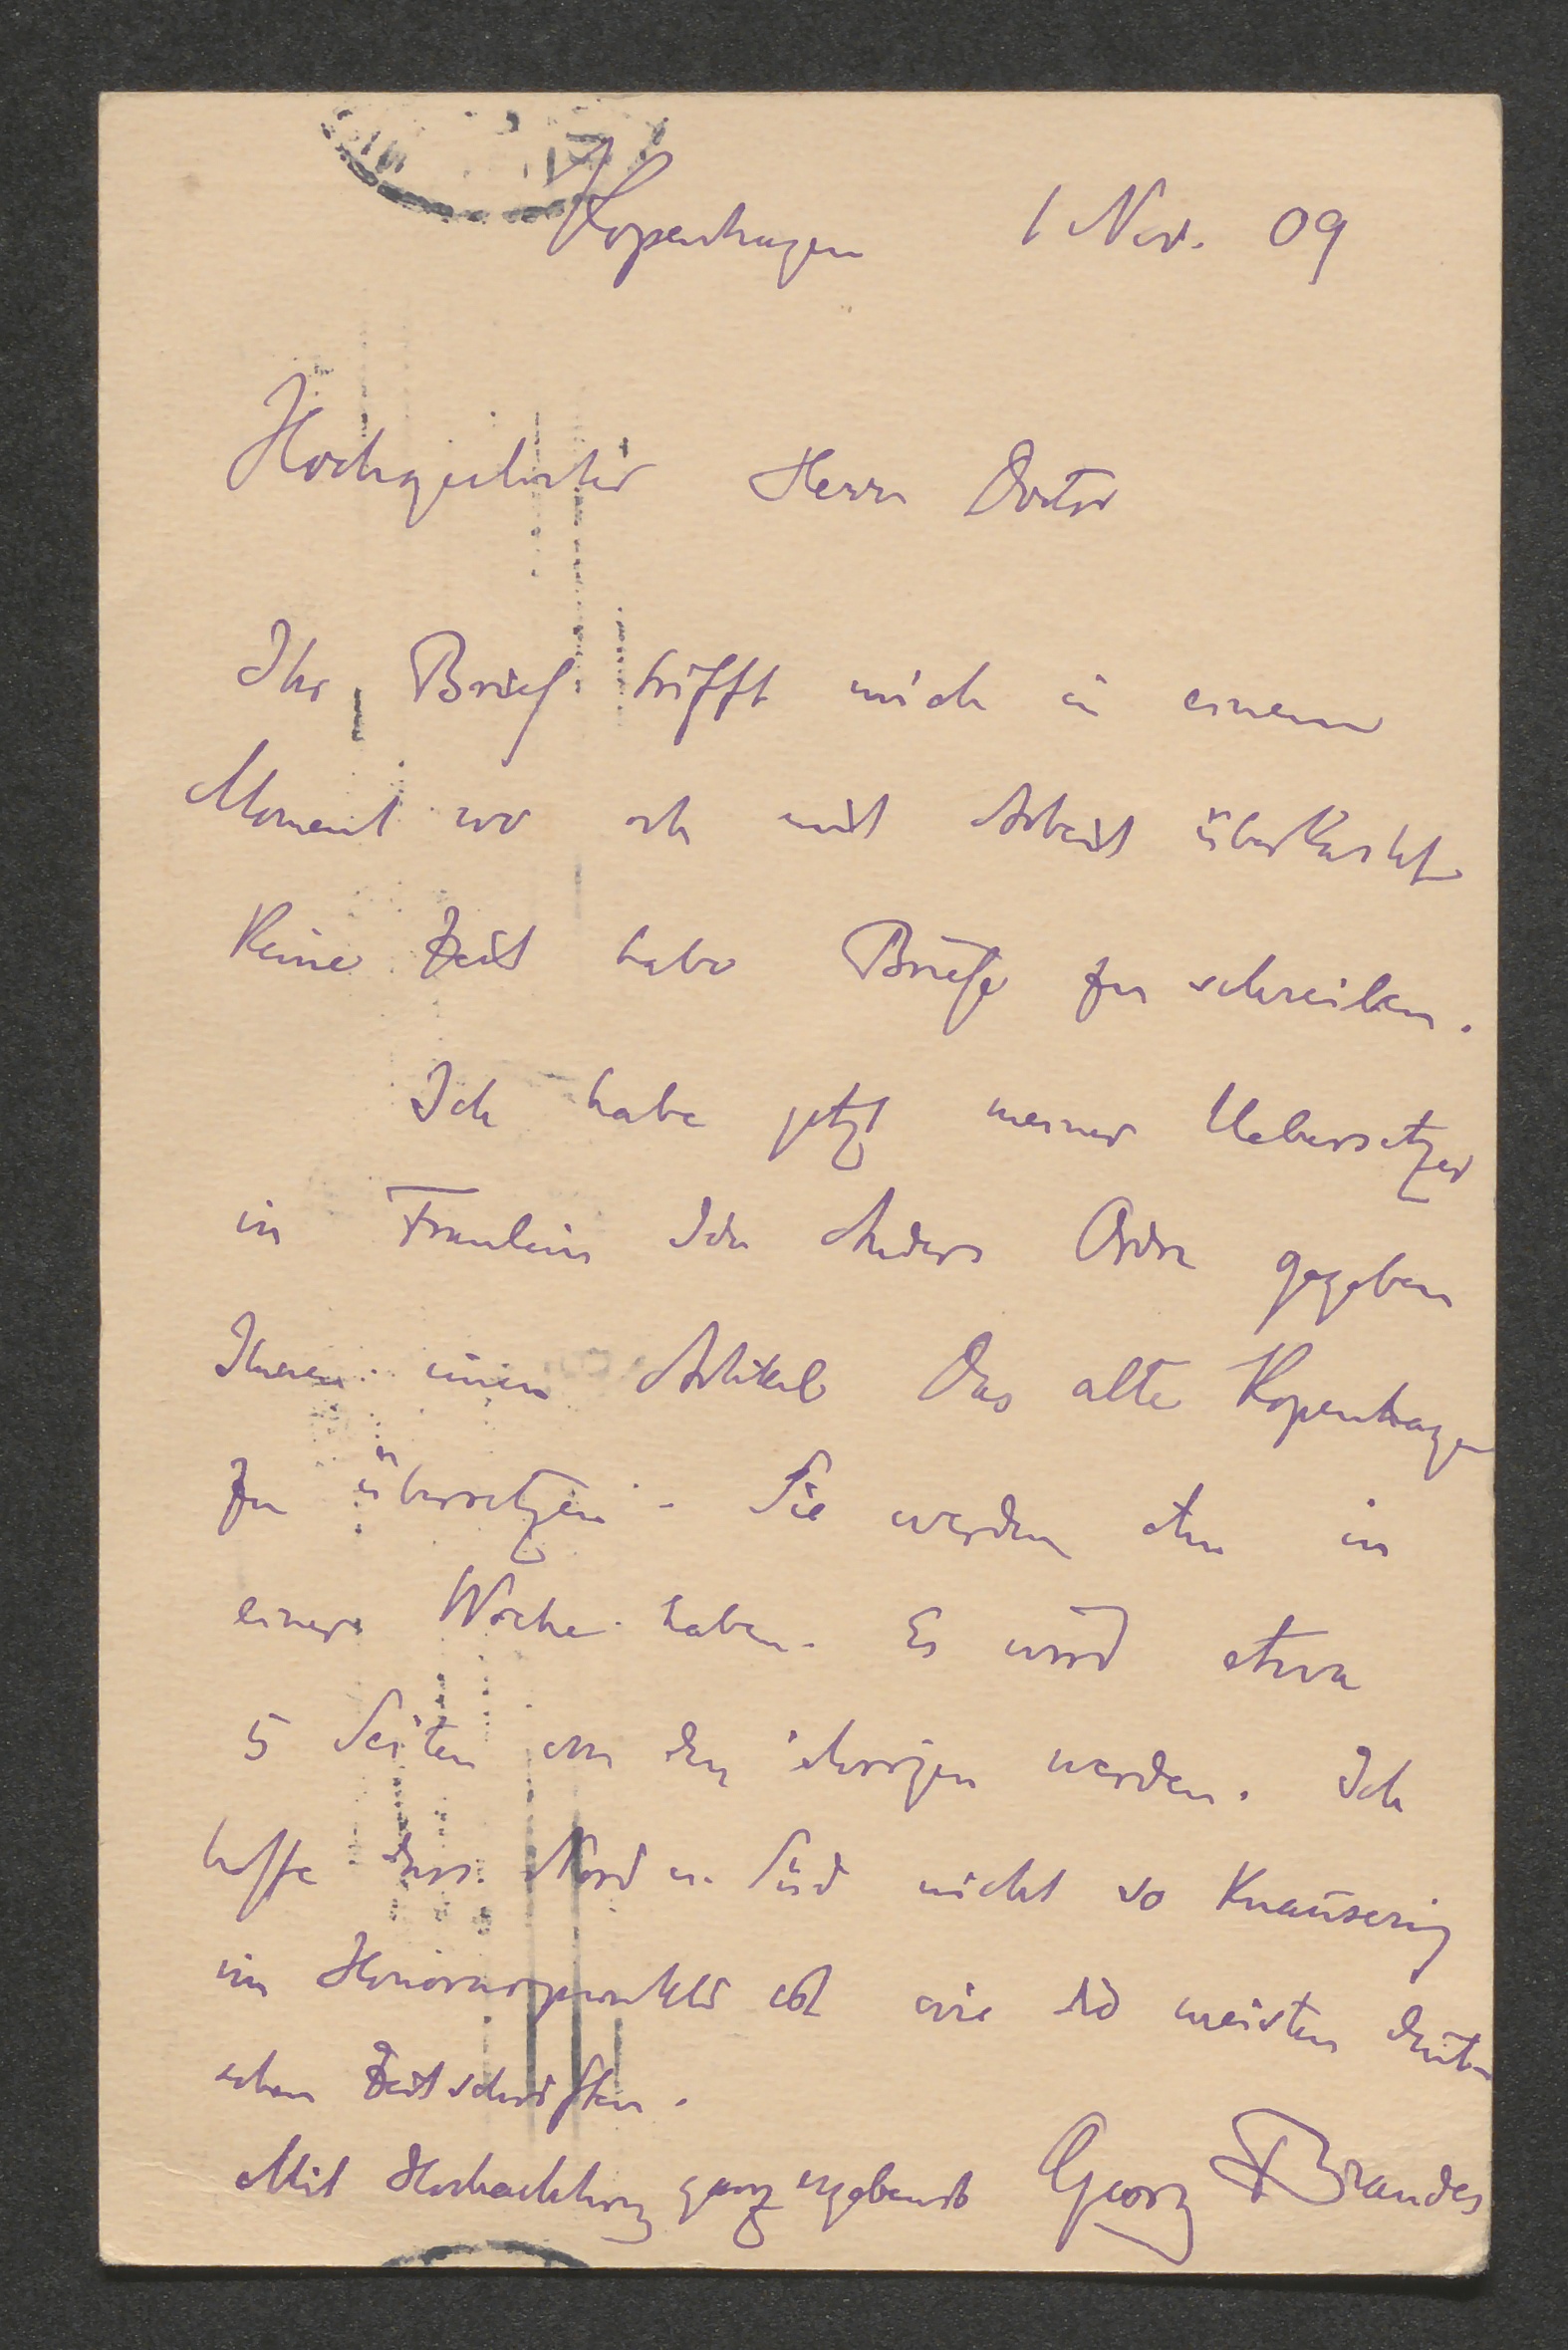 Kopenhagen 1 Nov. 09
Hochgeehrter Herr Doctor
Ihr Brief trifft mich in einem
Moment wo ich mit Arbeit überhäuft
keine Zeit habe Briefe zu schreiben.
Ich habe jetzt meiner Uebersetzer
in Fraulein Ida Anders Ordre gegeben
Ihnen einen Artikel Das alte Kopenhagen
zu übersetzen. Sie werden ihn in
einer Woche haben. Es wird etwa
5 Seiten von den ihrigen werden. Ich
hoffe dass Nord u. Süd nicht so knauserig
im Honorarpunkte ist wie die meisten deut
schen Zeitschriften.
Mit Hochachtung ganz ergebenst Georg Brandes